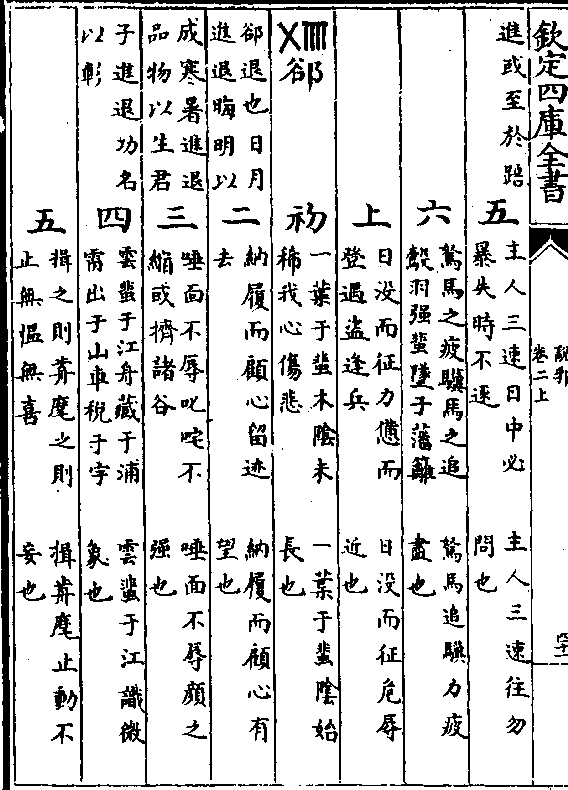 欽定四庫全書
說郛
卷二上
進或至於踣
五
主人三速日中必
暴失時不逐
主人三速往勿
問也
六
駑馬之疲驥馬之追
鷇羽强蜚墜于藩籬
駑馬追驥力疲
盡也
上
日没而征力憊而
登遇盜逢兵
日没而征危辱
近也
郤
初
一葉于蜚木陰未
稀我心傷悲
一葉于蜚陰始
長也
郤退也日月
進退晦明以
二
納履而顧心留迹
去
納履而顧心有
望也
成寒暑進退
品物以生君
三
唾面不辱叱咤不
縮或擠諸谷
唾面不辱顏之
强也
子進退功名
以彰
四
雲蜚于江舟藏于浦
霤出于山車稅于宇
雲蜚于江識微
象也
五
揖之則麾之則
止無慍無喜
揖麾止動不
妄也